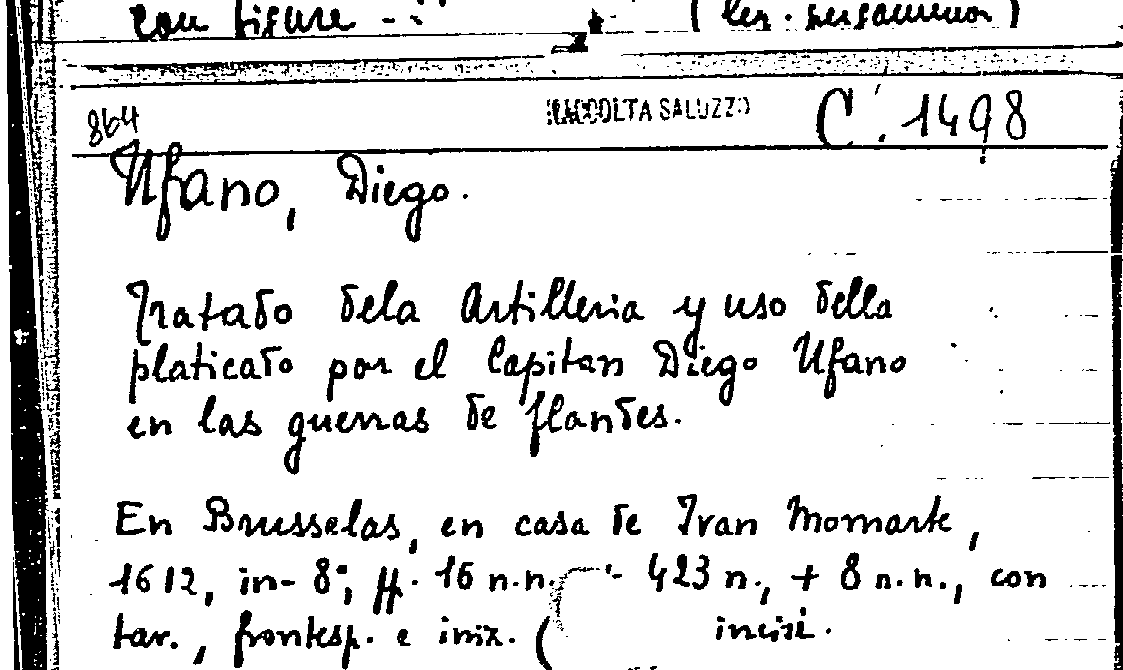 con figure
864 RACCOLTA SALUZZO C. 1498
Ufano, Diego.
Tratado dela Artilleria y uso della
platicado por el Capitan Diego Ufano
en las guerras de flandes.
En Brusselas, en casa de Ivan Momarte,
1612, in-8°, ff. 16 n.n. 423 n., + 8 n.n., con
tav., frontesp. e iniz. ( incisi.